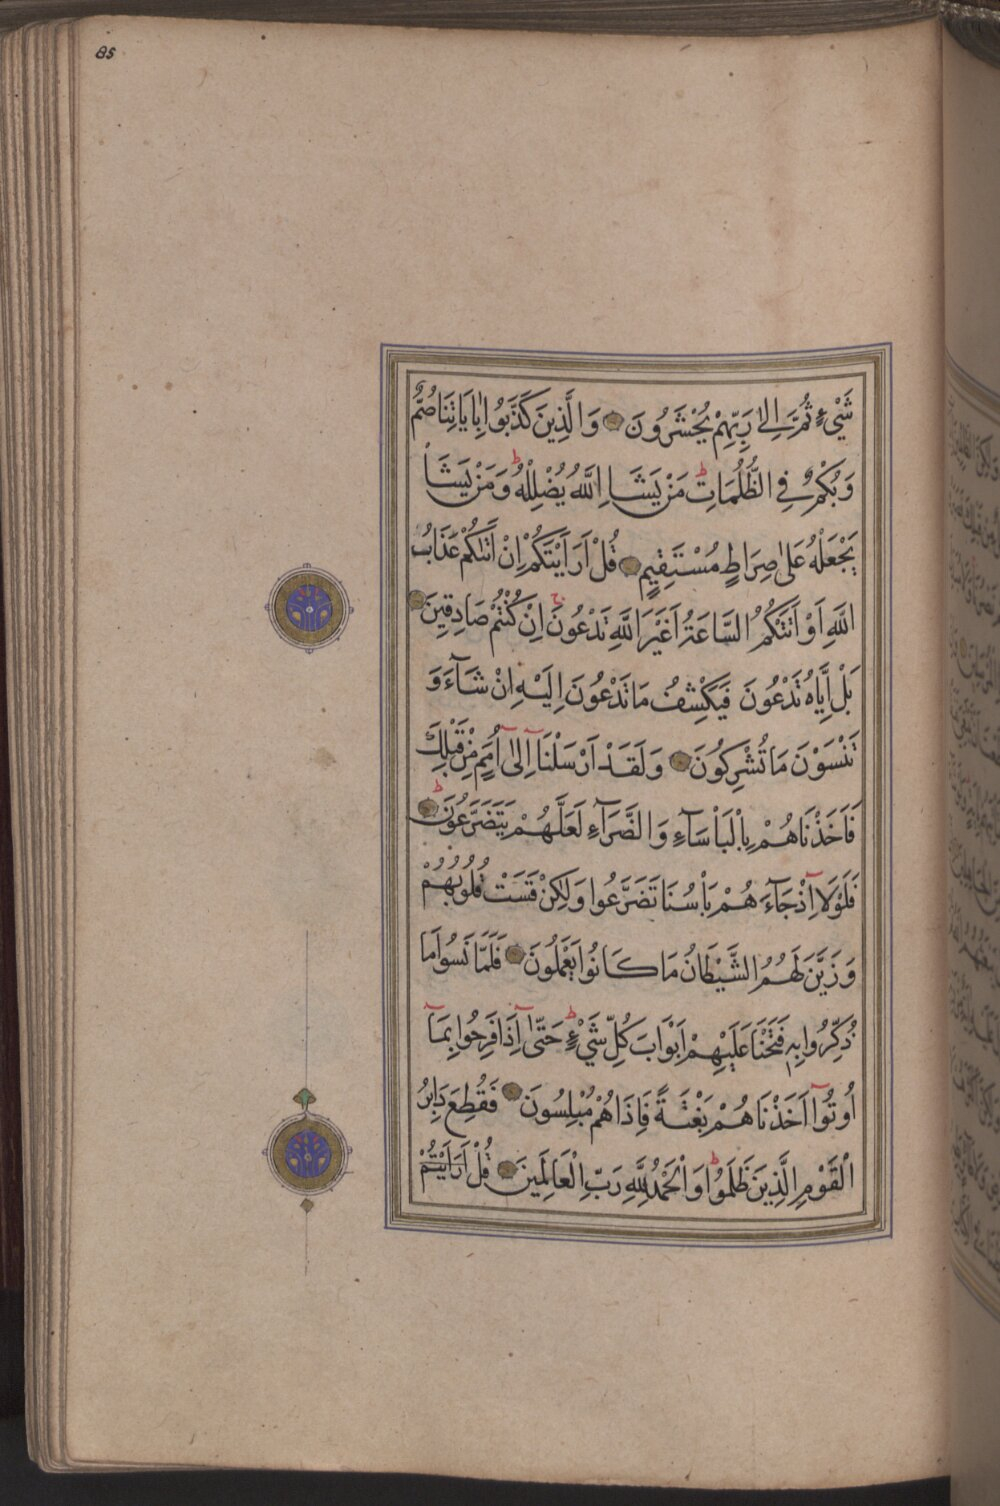 85
شَيْءٍ ثُمَّ اِلٰى رَبِّهِمْ يُحْشَرُونَ وَالَّذِينَ كَذَّبُوا بِاٰيَاتِنَا صُمٌّ
وَبُكْمٌ فِي الظُّلُمَاتِ ط مَنْ يَشَاِ اللَّهُ يُضْلِلْهُ ط وَمَنْ يَشَأْ
يَجْعَلْهُ عَلٰى صِرَاطٍ مُسْتَقِيمٍ قُلْ اَرَاَيْتَكُمْ اِنْ اَتٰىكُمْ عَذَابُ
اللَّهِ اَوْ اَتَتْكُمُ السَّاعَةُ اَغَيْرَ اللَّهِ تَدْعُونَ ج اِنْ كُنْتُمْ صَادِقِينَ
بَلْ اِيَّاهُ تَدْعُونَ فَيَكْشِفُ مَا تَدْعُونَ اِلَيْهِ اِنْ شَآءَ وَ
تَنْسَوْنَ مَا تُشْرِكُونَ وَلَقَدْ اَرْسَلْنَآ اِلٰٓى اُمَمٍ مِنْ قَبْلِكَ
فَاَخَذْنَاهُمْ بِالْبَأْسَآءِ وَالضَّرَّآءِ لَعَلَّهُمْ يَتَضَرَّعُونَ ط
فَلَوْلَآ اِذْ جَآءَهُمْ بَأْسُنَا تَضَرَّعُوا وَلٰكِنْ قَسَتْ قُلُوبُهُمْ
وَزَيَّنَ لَهُمُ الشَّيْطَانُ مَا كَانُوا يَعْمَلُونَ فَلَمَّا نَسُوا مَا
ذُكِّرُوا بِهِ فَتَحْنَا عَلَيْهِمْ اَبْوَابَ كُلِّ شَيْءٍ ط حَتّٰىٓ اِذَا فَرِحُوا بِمَآ
اُوتُوٓا اَخَذْنَاهُمْ بَغْتَةً فَاِذَا هُمْ مُبْلِسُونَ فَقُطِعَ دَابِرُ
الْقَوْمِ الَّذِينَ ظَلَمُوا ط وَالْحَمْدُ لِلَّهِ رَبِّ الْعَالَمِينَ قُلْ اَرَاَيْتُمْ